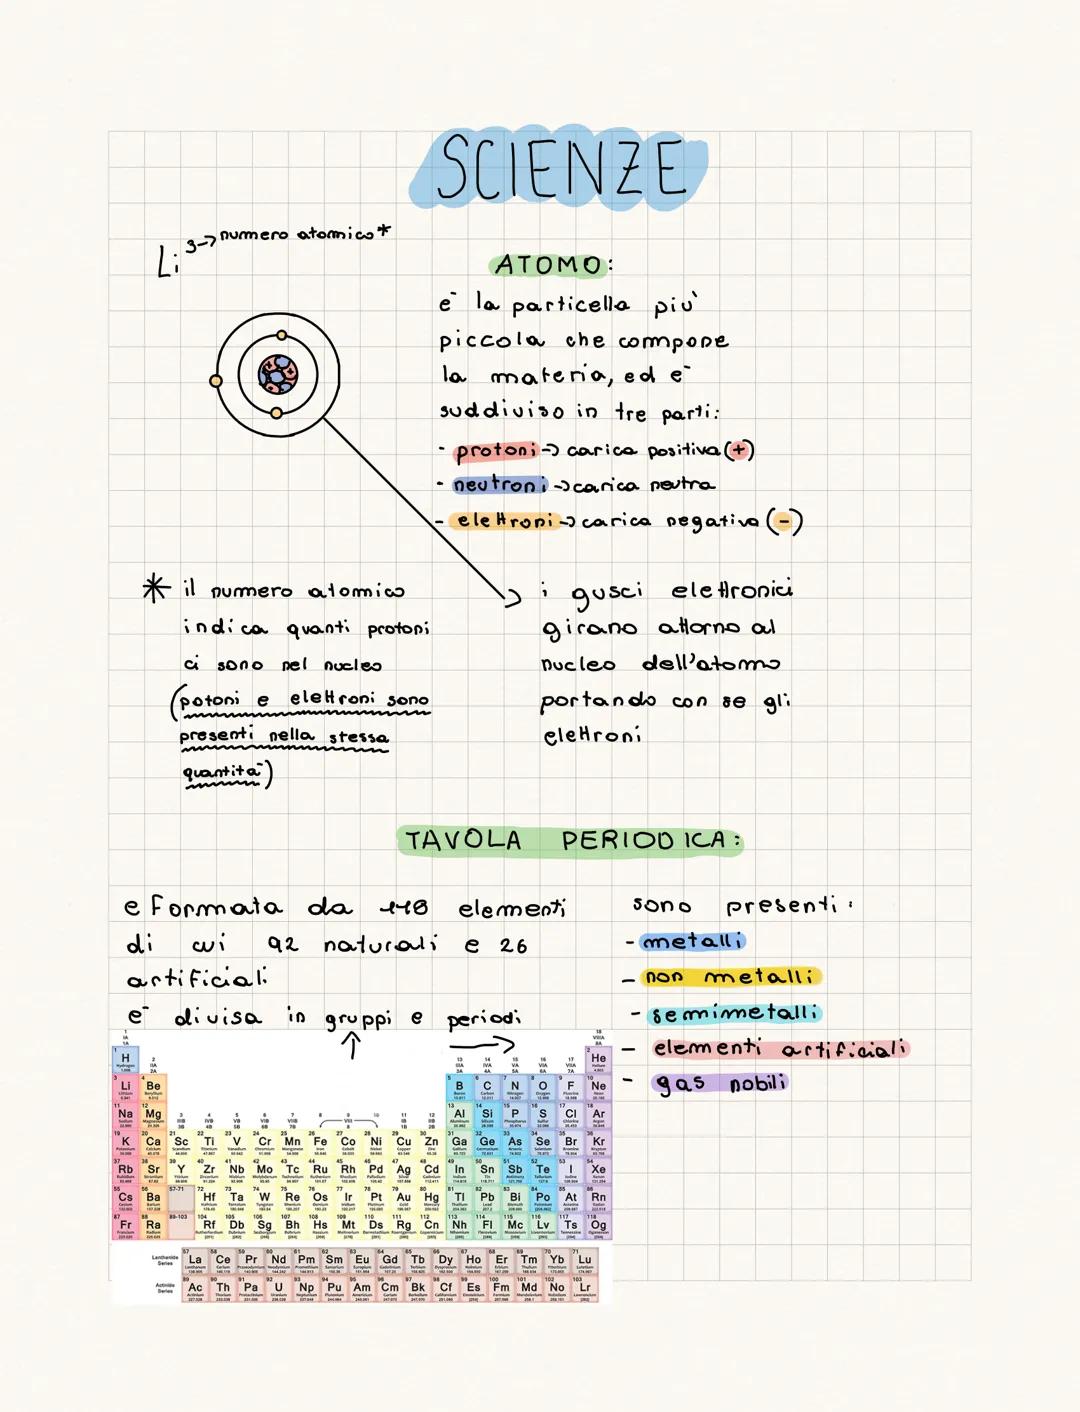 SCIENZE
Li 3 -> numero atomico*
ATOMO:
e¯ la particella piu`
piccola che compone
la materia, ed e¯
suddiviso in tre parti:
- protoni -> carica positiva (+)
- neutroni -> carica neutra
- elettroni -> carica negativa (-)
* il numero atomico
indica quanti protoni
ci sono nel nucleo
(potoni e elettroni sono
presenti nella stessa
quantita¯)
i gusci elettronici
girano attorno al
nucleo dell'atomo
portando con se gli
elettroni
TAVOLA PERIODICA:
e formata da 118 elementi
di cui 92 naturali e 26
artificiali
e¯ divisa in gruppi e periodi
sono presenti:
- metalli
- non metalli
- semimetalli
- elementi artificiali
- gas nobili
H He
Li Be B C N O F Ne
Na Mg Al Si P S Cl Ar
K Ca Sc Ti V Cr Mn Fe Co Ni Cu Zn Ga Ge As Se Br Kr
Rb Sr Y Zr Nb Mo Tc Ru Rh Pd Ag Cd In Sn Sb Te I Xe
Cs Ba 57-71 Hf Ta W Re Os Ir Pt Au Hg Tl Pb Bi Po At Rn
Fr Ra 89-103 Rf Db Sg Bh Hs Mt Ds Rg Cn Nh Fl Mc Lv Ts Og
Lanthanide Series La Ce Pr Nd Pm Sm Eu Gd Tb Dy Ho Er Tm Yb Lu
Actinide Series Ac Th Pa U Np Pu Am Cm Bk Cf Es Fm Md No Lr